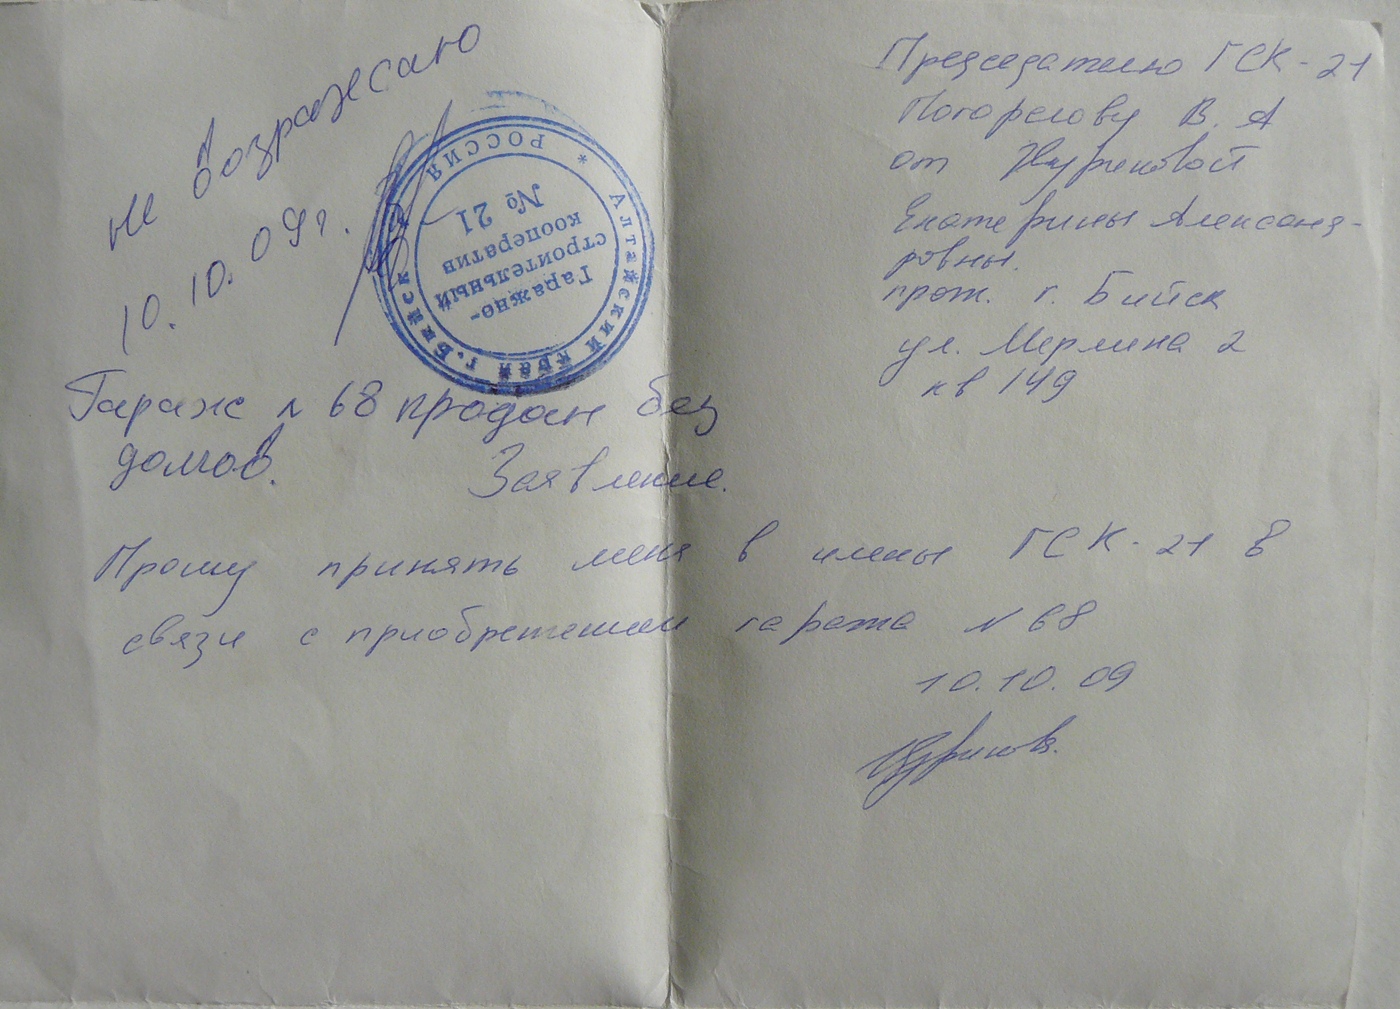 Не возражаю
10.10.09г.
* РОССИЯ * Алтайский край г. Бийск
Гаражно-
строительный
кооператив
№ 21
Председателю ГСК-21
Погорелову В. А
от
Екатерины Александ-
ровны.
прож. г. Бийск
ул. Мерлина 2
кв 149
Гараж № 68 продан без
долгов.
Заявление.
Прошу принять меня в члены ГСК-21 в
связи с приобретением гаража № 68
10.10.09